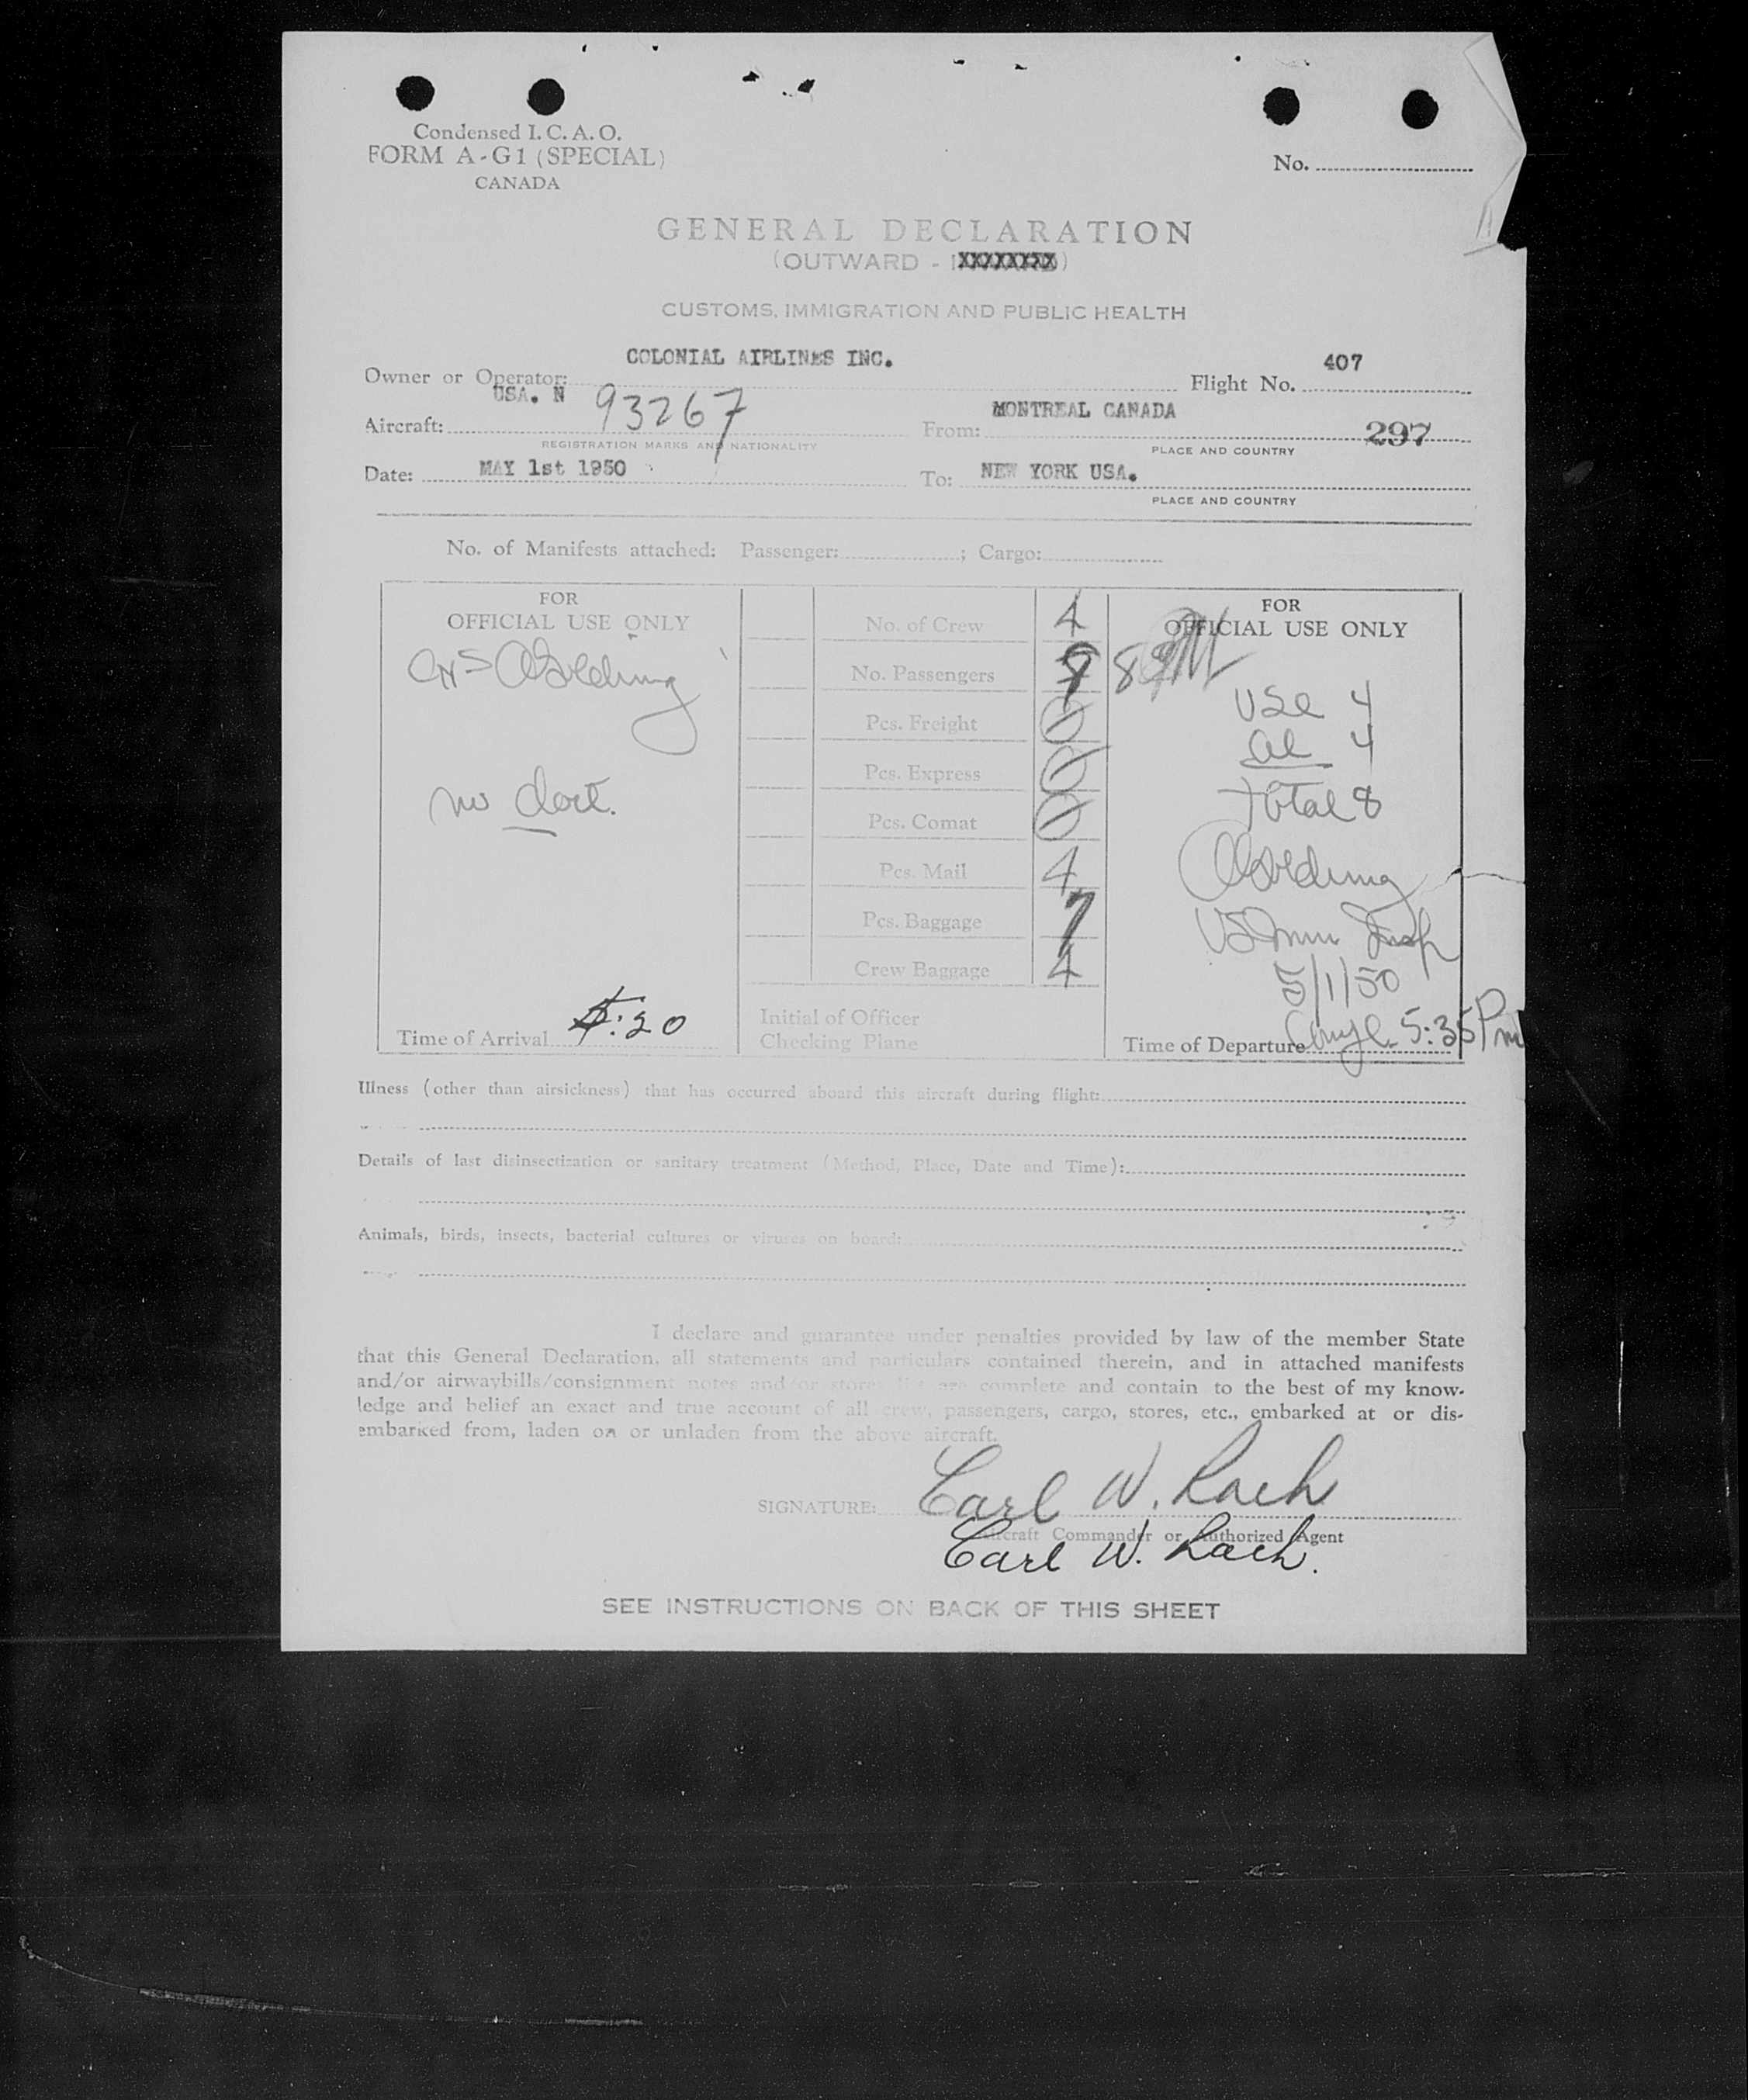 Condensed I. C. A. O.
FORM A-G1 (SPECIAL)
CANADA
No.
GENERAL DECLARATION
(OUTWARD - XXXXXXXX)
CUSTOMS, IMMIGRATION AND PUBLIC HEALTH
Owner or Operator: COLONIAL AIRLINES INC. Flight No. 407
Aircraft: USA. N 93267 From: MONTREAL CANADA 297
REGISTRATION MARKS AND NATIONALITY PLACE AND COUNTRY
Date: MAY 1st 1950 To: NEW YORK USA.
PLACE AND COUNTRY
No. of Manifests attached: Passenger: ; Cargo:
FOR
OFFICIAL USE ONLY
no
No. of Crew 4
No. Passengers 9 8
Pcs. Freight 0
Pcs. Express 0
Pcs. Comat 0
Pcs. Mail 4
Pcs. Baggage 7
Crew Baggage 4
FOR
OFFICIAL USE ONLY
USC 4
al 4
Total 8
US Imm Insp
5/1/50
Time of Arrival 5:20
Initial of Officer
Checking Plane
Time of Departure 5:35 Pm
Illness (other than airsickness) that has occurred aboard this aircraft during flight:
Details of last disinsectization or sanitary treatment (Method, Place, Date and Time):
Animals, birds, insects, bacterial cultures or viruses on board:
I declare and guarantee under penalties provided by law of the member State
that this General Declaration, all statements and particulars contained therein, and in attached manifests
and/or airwaybills/consignment notes and/or stores list are complete and contain to the best of my know-
ledge and belief an exact and true account of all crew, passengers, cargo, stores, etc., embarked at or dis-
embarked from, laden on or unladen from the above aircraft.
SIGNATURE: Carl W. Rach
Aircraft Commander or Authorized Agent
Carl W. Rach.
SEE INSTRUCTIONS ON BACK OF THIS SHEET